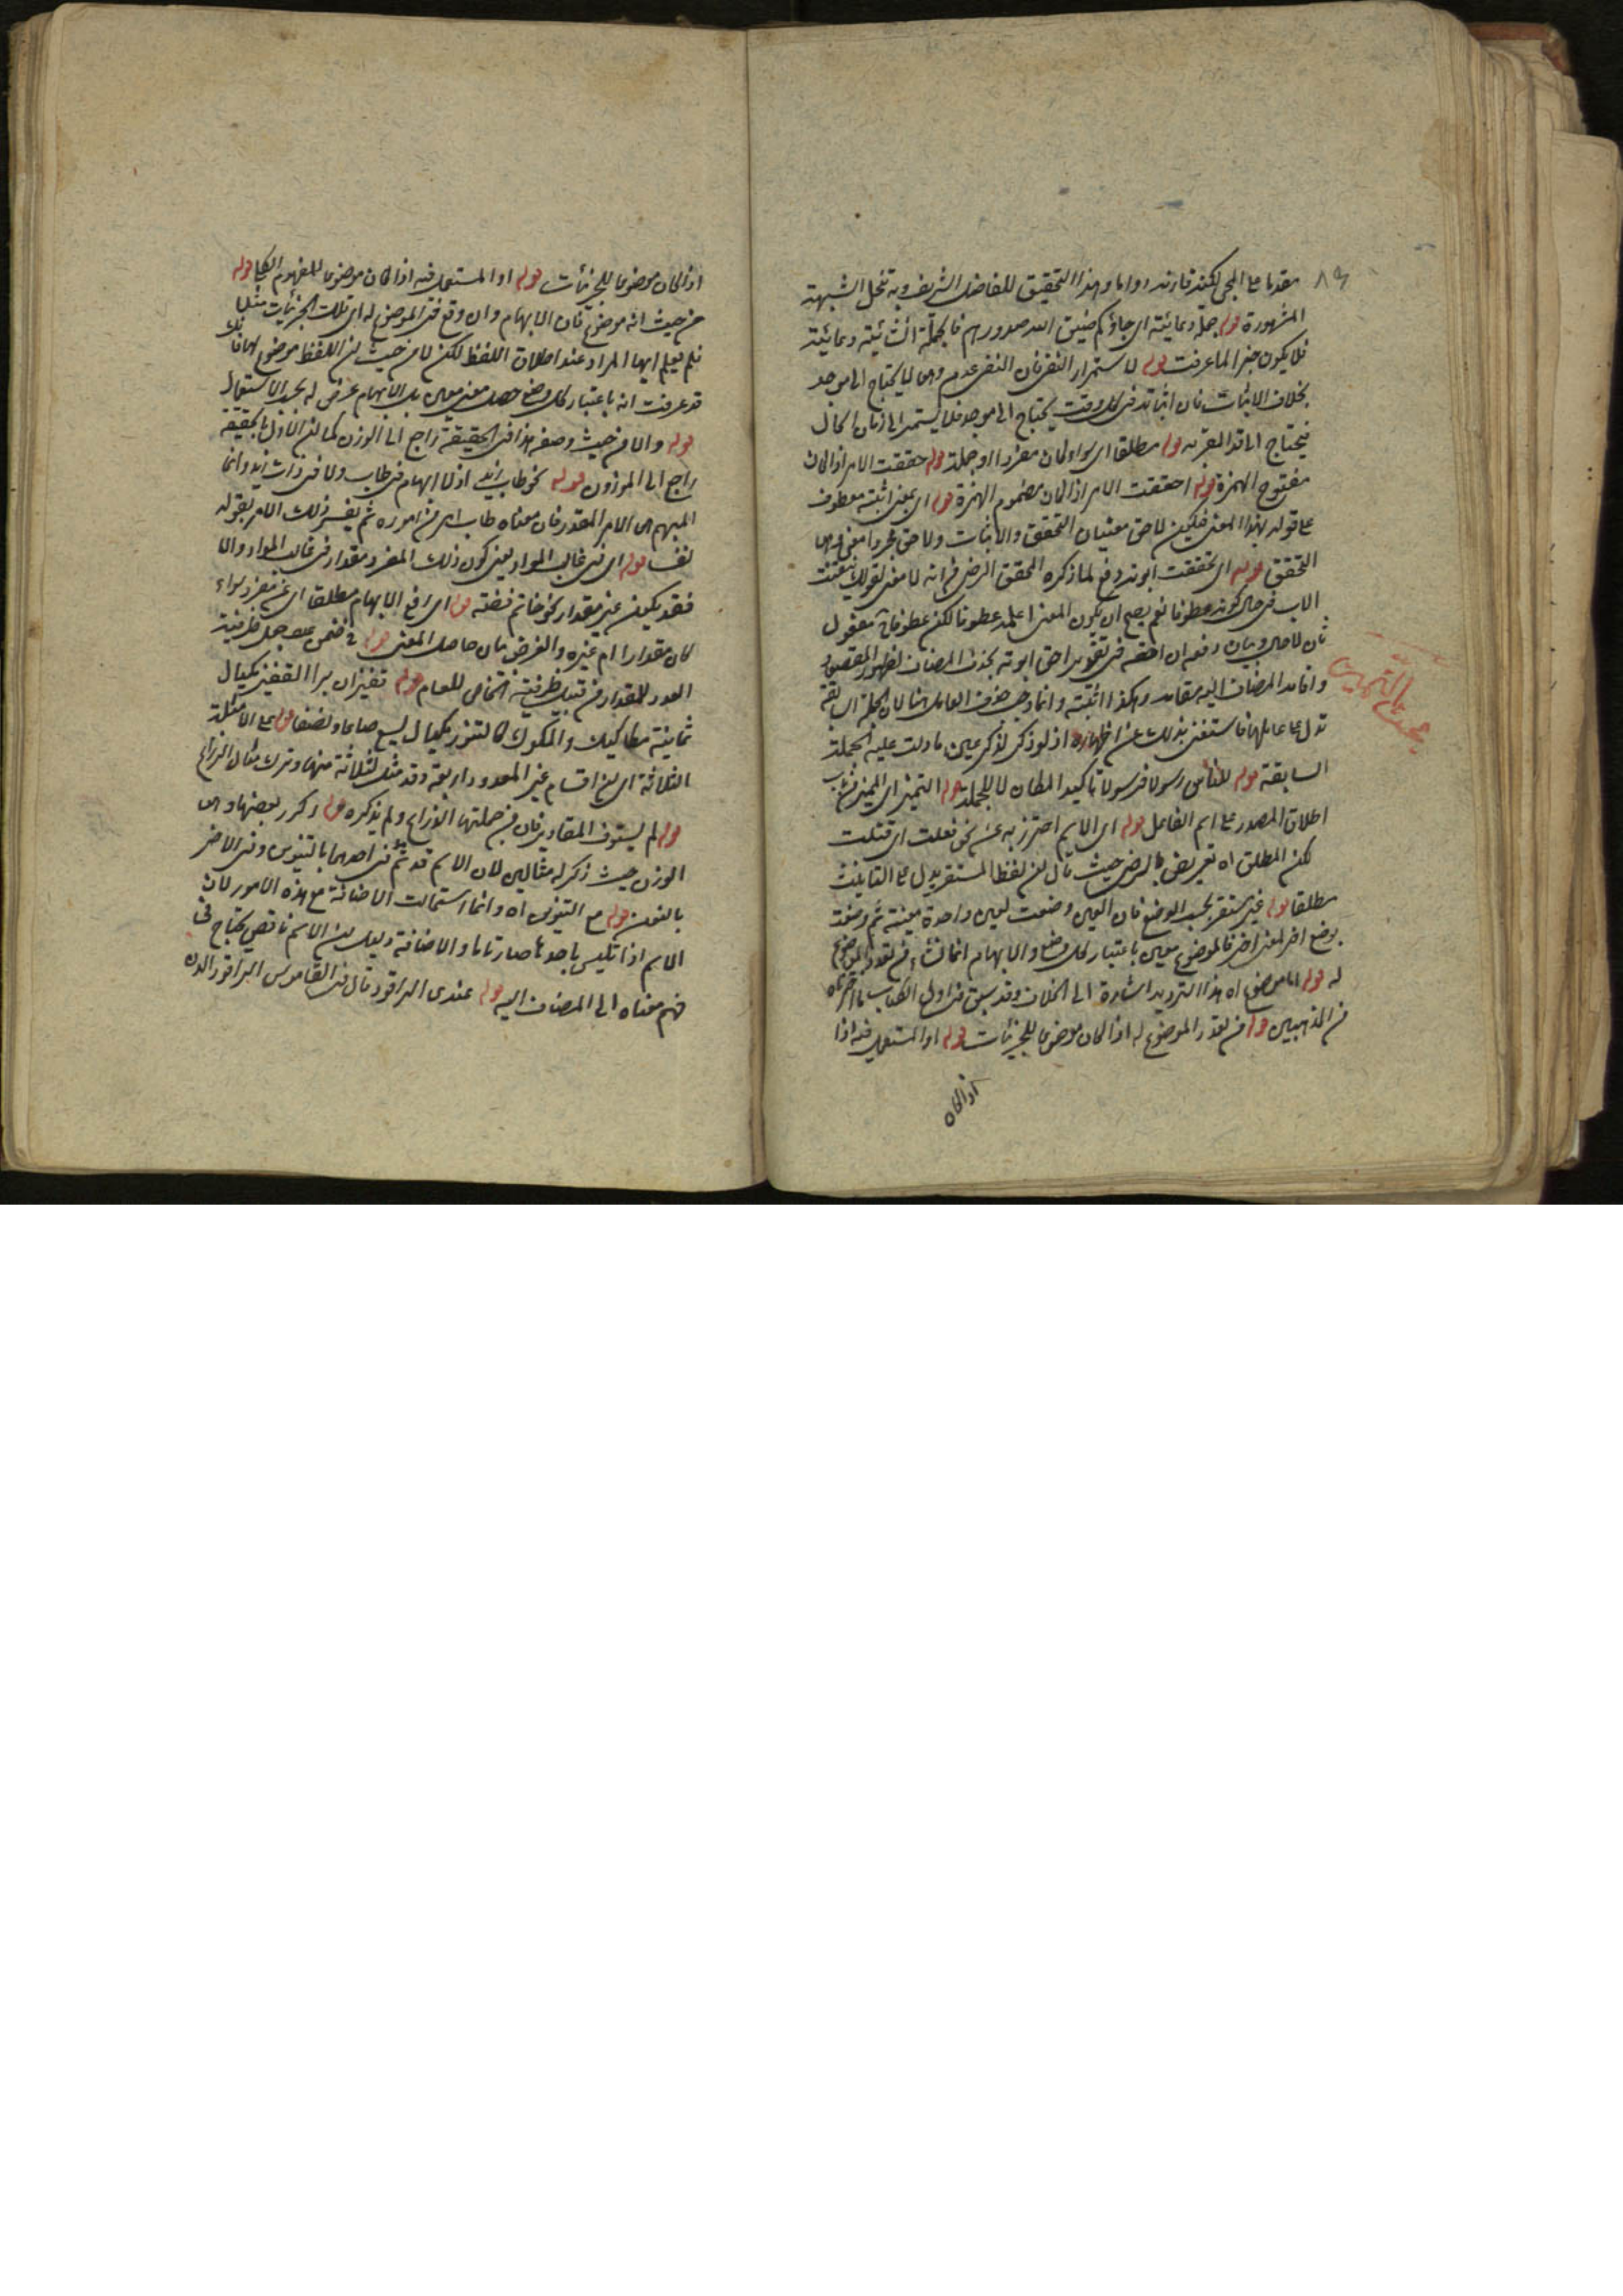 ٨٩
مقدما على المجئ لكنه قارنه دواما وهذا التحقيق للفاضل الشريف وبه تنحل الشبهة
المشهورة قوله جملة دعائية اى جاؤكم ضيق الله صدورهم فالجملة انشائية دعائية
فلا يكون خبرا لما عرفت قوله لاستمرار النفى فان النفى عدم وهى لا يحتاج الى موجد
بخلاف الاثبات فان اثباته فى كل وقت يحتاج الى موجد فلا يستمر الى زمان الحال
فيحتاج الى قد المقربة قوله مطلقا اى سواء كان مفردا او جملة قوله حققت الامر اذا كان
مفتوح الهمزة قوله احققت الامر اذا كان مضموم الهمزة قوله اى بمعنى اثبته معطوف
على قوله بهذا المعنى فيكون لاحق معنيان التحقق والاثبات ولاحق مجردا معنى هى
التحقق قوله اى تحققت ابوته دفع لما ذكره المحقق الرضى من انه لا معنى لقولك تيقنت
الاب فى حال كونه عطوفا نعم يصح ان يكون المعنى اعلمه عطوفا لكن عطوفا مفعول
ثان لا حال وبيان دفعه ان احقه فى تقدير احق ابوته بحذف المضاف لظهور المقصود
واقامة المضاف اليه مقامه وهكذا اثبته وانما وجب حذف العامل هنا لان الجملة السابقة
تدل على عاملها فاستغنى بذلك عن اظهاره اذ لو ذكر لذكر عين ما دلت عليه الجملة
السابقة قوله للناس رسولا فرسولا تاكيد المطان لا للجملة قوله التمييز اى المميز من باب
اطلاق المصدر على اسم الفاعل قوله اى الاسم احترز به عن نحو فعلت اى قتلت
لكن المطلق اه تعريض بالرضى حيث قال لان لفظ المستقر يدل على الثابت
مطلقا قوله غير مستقر بحسب الوضع فان العين وضعت لعين واحدة معينة ثم وضعت
بوضع اخر لمعنى اخر فالموضوع معين باعتبار كل وضع والابهام انما نشاء من تعدد الموضوع
له قوله اما موضوع اه هذا الترديد اشارة الى الخلاف وقد سبق فى اول الكتاب ما اختاره
من المذهبين قوله من تعدد الموضوع له اذا كان موضوعا للجزئيات قوله او المستعمل فيه اذا
اذا كان
بحث التمييز
اذا كان موضوعا للجزئيات قوله او المستعمل فيه اذا كان موضوعا للمفهوم الكلى قوله
من حيث انه موضوع فان الابهام وان وقع فى الموضوع له اى تلك الجزئيات مثلا
فلم يعلم ايها المراد عند اطلاق اللفظ لكن لا من حيث ان اللفظ موضوع لها فانك
قد عرفت انه باعتبار كل وضع حصل معنى معين بل الابهام عرض له بحسب الاستعمال
قوله والا من حيث وصفه هذا فى الحقيقة راجع الى الوزن كما ان الاول بالحقيقة
راجع الى الموزون قوله نحو طاب زيد اذ لا ابهام فى طاب ولا فى ذات زيد وانما
المبهم هى الامر المقدر فان معناه طاب امر من اموره ثم يفسر ذلك الامر بقوله
نفسا قوله اى فى غالب المواد يعنى كون ذلك المفرد مقدار فى غالب المواد والا
فقد يكون غير مقدار نحو خاتم فضة قوله اى رافع الابهام مطلقا اى عن مفرد سواء
كان مقدارا ام غيره والغرض بيان حاصل المعنى قوله فى ضمن عدد جعل ظرفية
العدد للمقدار من قبيل ظرفية الخاص للعام قوله قفيزان برا القفيز مكيال
ثمانية مكاكيك والمكوك كالتنور مكيال يسع صاعا ونصفا قوله على الامثلة
الثلاثة اى مع اقسام غير المعدود اربعة وقد مثل لثلاثة منها وترك مثال الذراع
قوله لم يستوف المقادير فان من جملتها الذراع ولم يذكره قوله وكرر بعضها وهى
الوزن حيث ذكر له مثالين لان الاسم قد تم فى احدهما بالتنوين وفى الاخر
بالنون قوله مع التنوين اه وانما استحالت الاضافة مع هذه الامور لان
الاسم اذا تلبس باحدها صار تاما والاضافة دليل ان الاسم ناقص يحتاج فى
فهم معناه الى المضاف اليه قوله عندى الراقود قال فى القاموس الراقود الدن